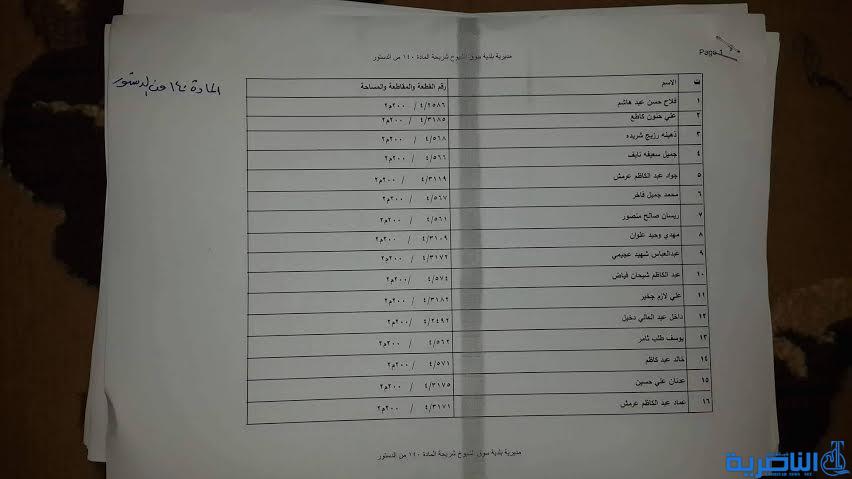 Page 1
مديرية بلدية سوق الشيوخ شريحة المادة ١٤٠ من الدستور
المادة ١٤٠ من الدستور
ت الاسم رقم القطعة والمقاطعة والمساحة
١ فلاح حسن عبد هاشم ٤/٢٥٨٦ / ٢٠٠م٢
٢ علي حنون كاطع ٤/٣١٨٥ / ٢٠٠م٢
٣ ذهينه رزيج شريده ٤/٥٦٨ / ٢٠٠م٢
٤ جميل سعيفه نايف ٤/٥٦٦ / ٢٠٠م٢
٥ جواد عبد الكاظم عرمش ٤/٣١١٩ / ٢٠٠م٢
٦ محمد جميل فاخر ٤/٥٦٧ / ٢٠٠م٢
٧ ريسان صالح منصور ٤/٥٦١ / ٢٠٠م٢
٨ مهدي وحيد علوان ٤/٣١٠٩ / ٢٠٠م٢
٩ عبدالعباس شهيد عجيمي ٤/٣١٧٢ / ٢٠٠م٢
١٠ عبد الكاظم شيحان فياض ٤/٥٧٤ /٢٠٠م٢
١١ علي لازم جخير ٤/٣١٨٢ / ٢٠٠م٢
١٢ داخل عبد العالي دخيل ٤/٢٤٩٢ /٢٠٠م٢
١٣ يوسف طلب ثامر ٤/٥٦٢ / ٢٠٠م٢
١٤ خالد عبد كاظم ٤/٥٧١ / ٢٠٠م٢
١٥ عدنان علي حسين ٤/٣١٧٥ / ٢٠٠م٢
١٦ عماد عبد الكاظم عرمش ٤/٣١٧١ / ٢٠٠م٢
مديرية بلدية سوق الشيوخ شريحة المادة ١٤٠ من الدستور
الناصرية